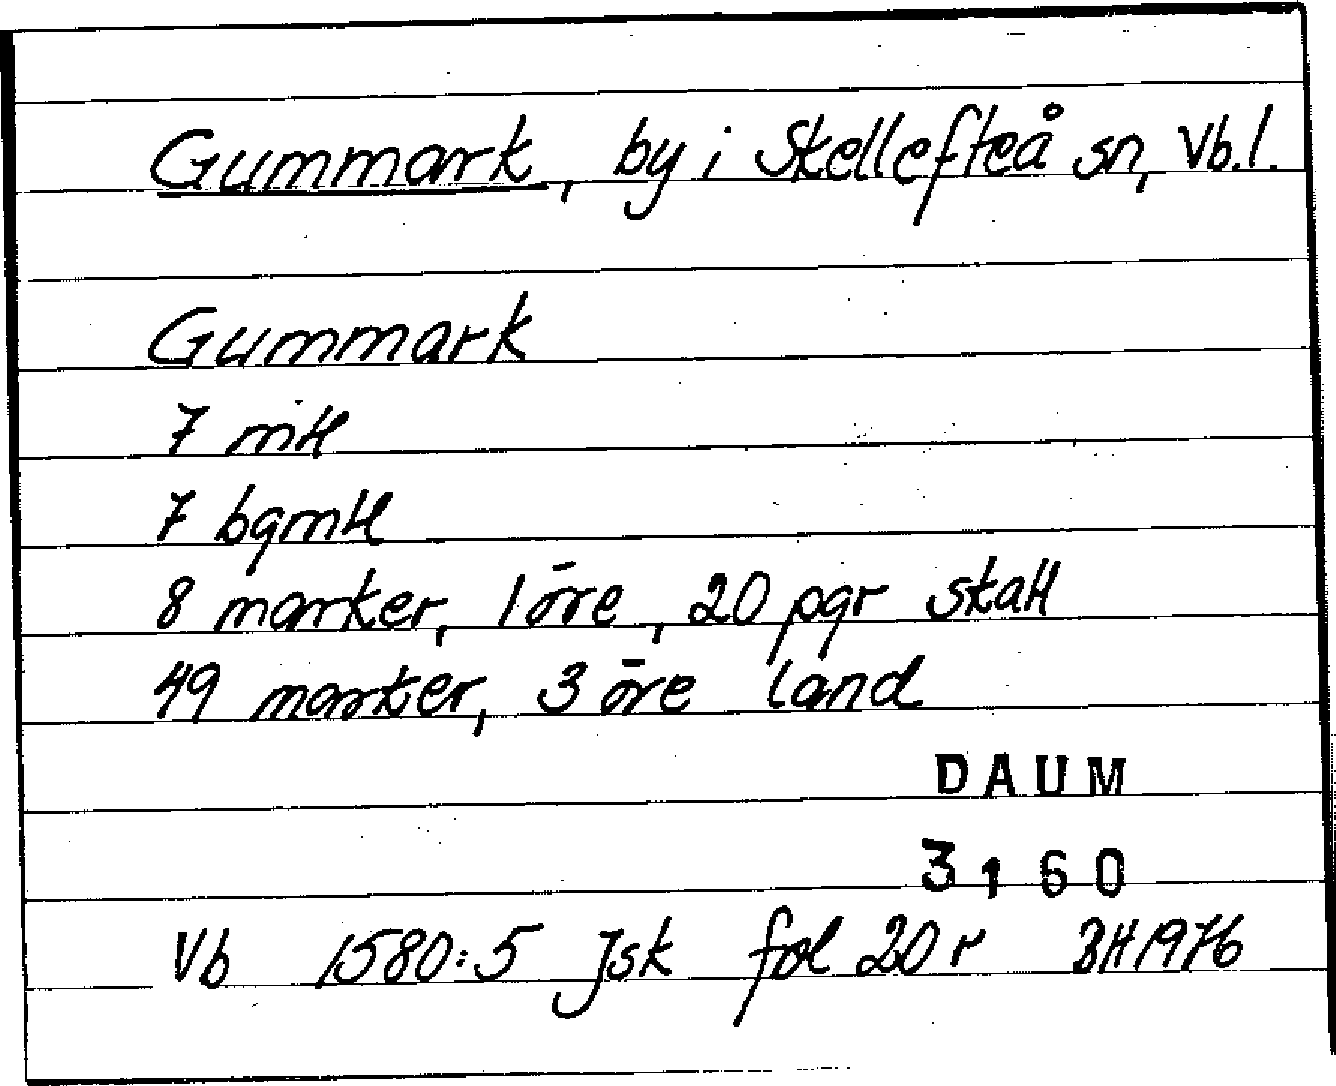 Gummark, by i Skellefteå sn, Vb.l.
Gummark
7 mtl
7 bgmtl
8 marker, 1 öre, 20 pgr skatt
49 marker, 3 öre land
DAUM
3160
Vb 1580:5 Jsk fol 20 r BH 1976